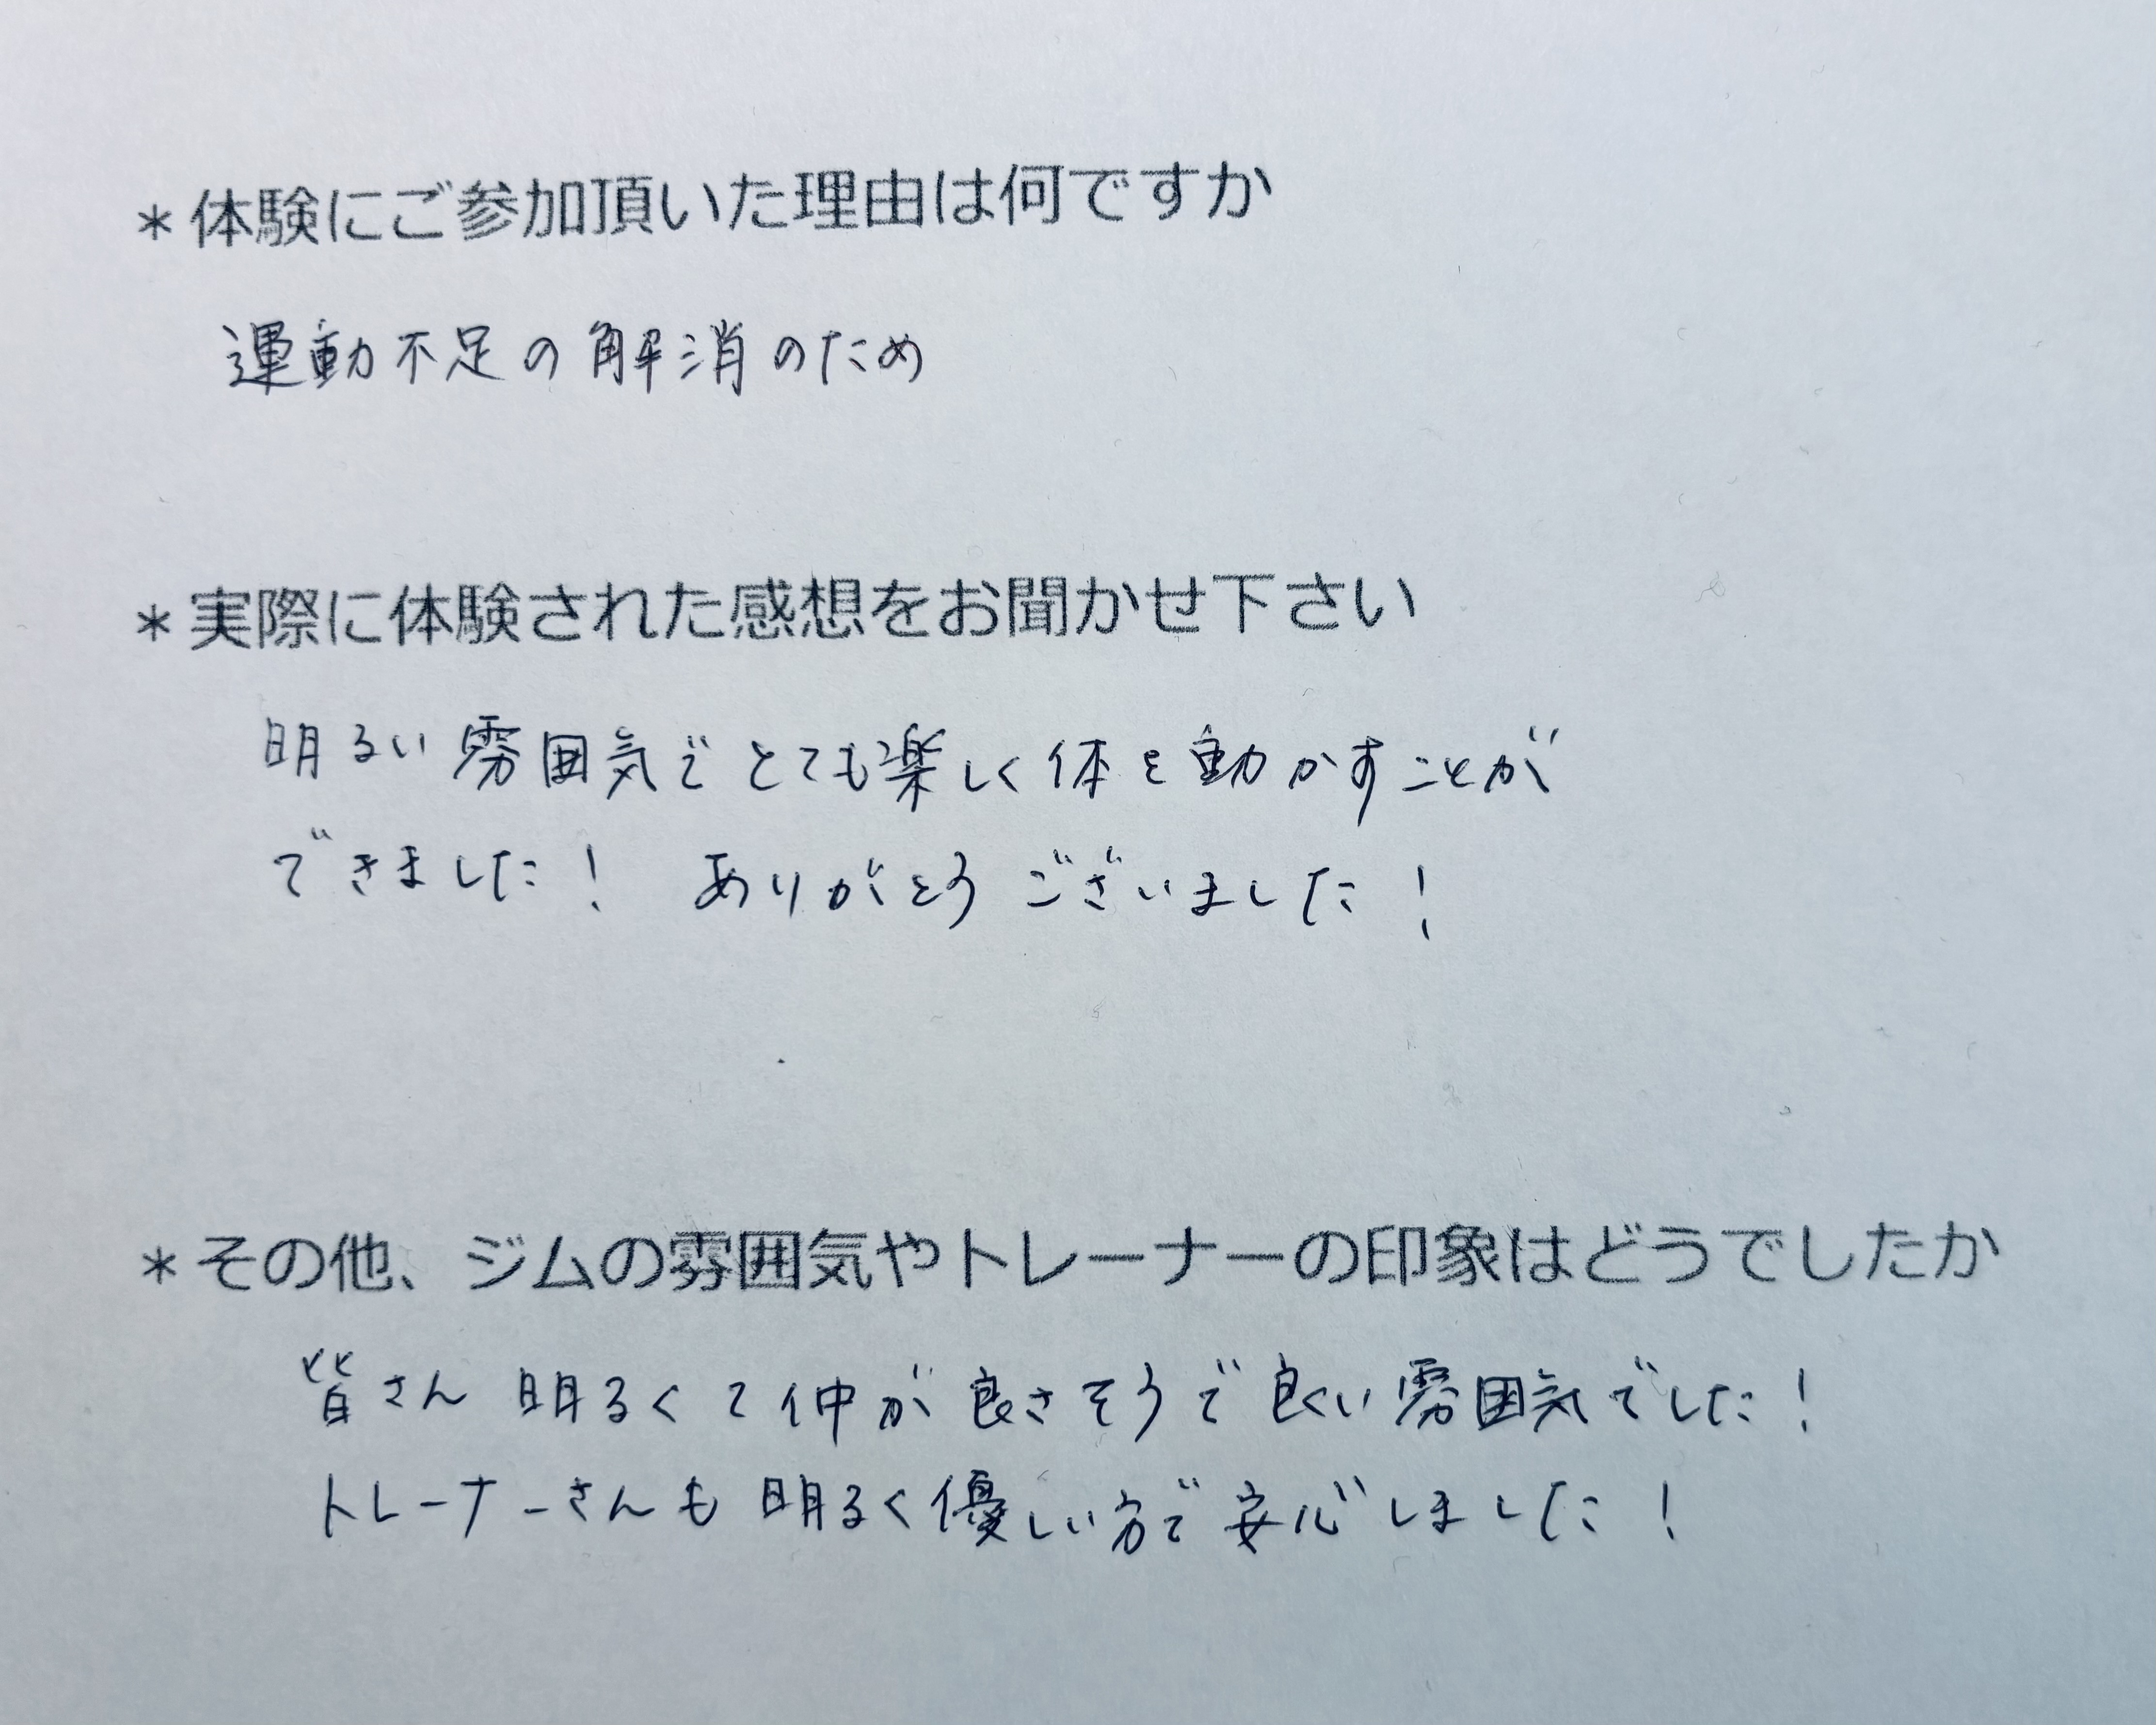 ＊体験にご参加頂いた理由は何ですか
運動不足の解消のため
＊実際に体験された感想をお聞かせ下さい
明るい雰囲気でとても楽しく体を動かすことが
できました！ ありがとうございました！
＊その他、ジムの雰囲気やトレーナーの印象はどうでしたか
皆さん明るくて仲が良さそうで良い雰囲気でした！
トレーナーさんも明るく優しい方で安心しました！